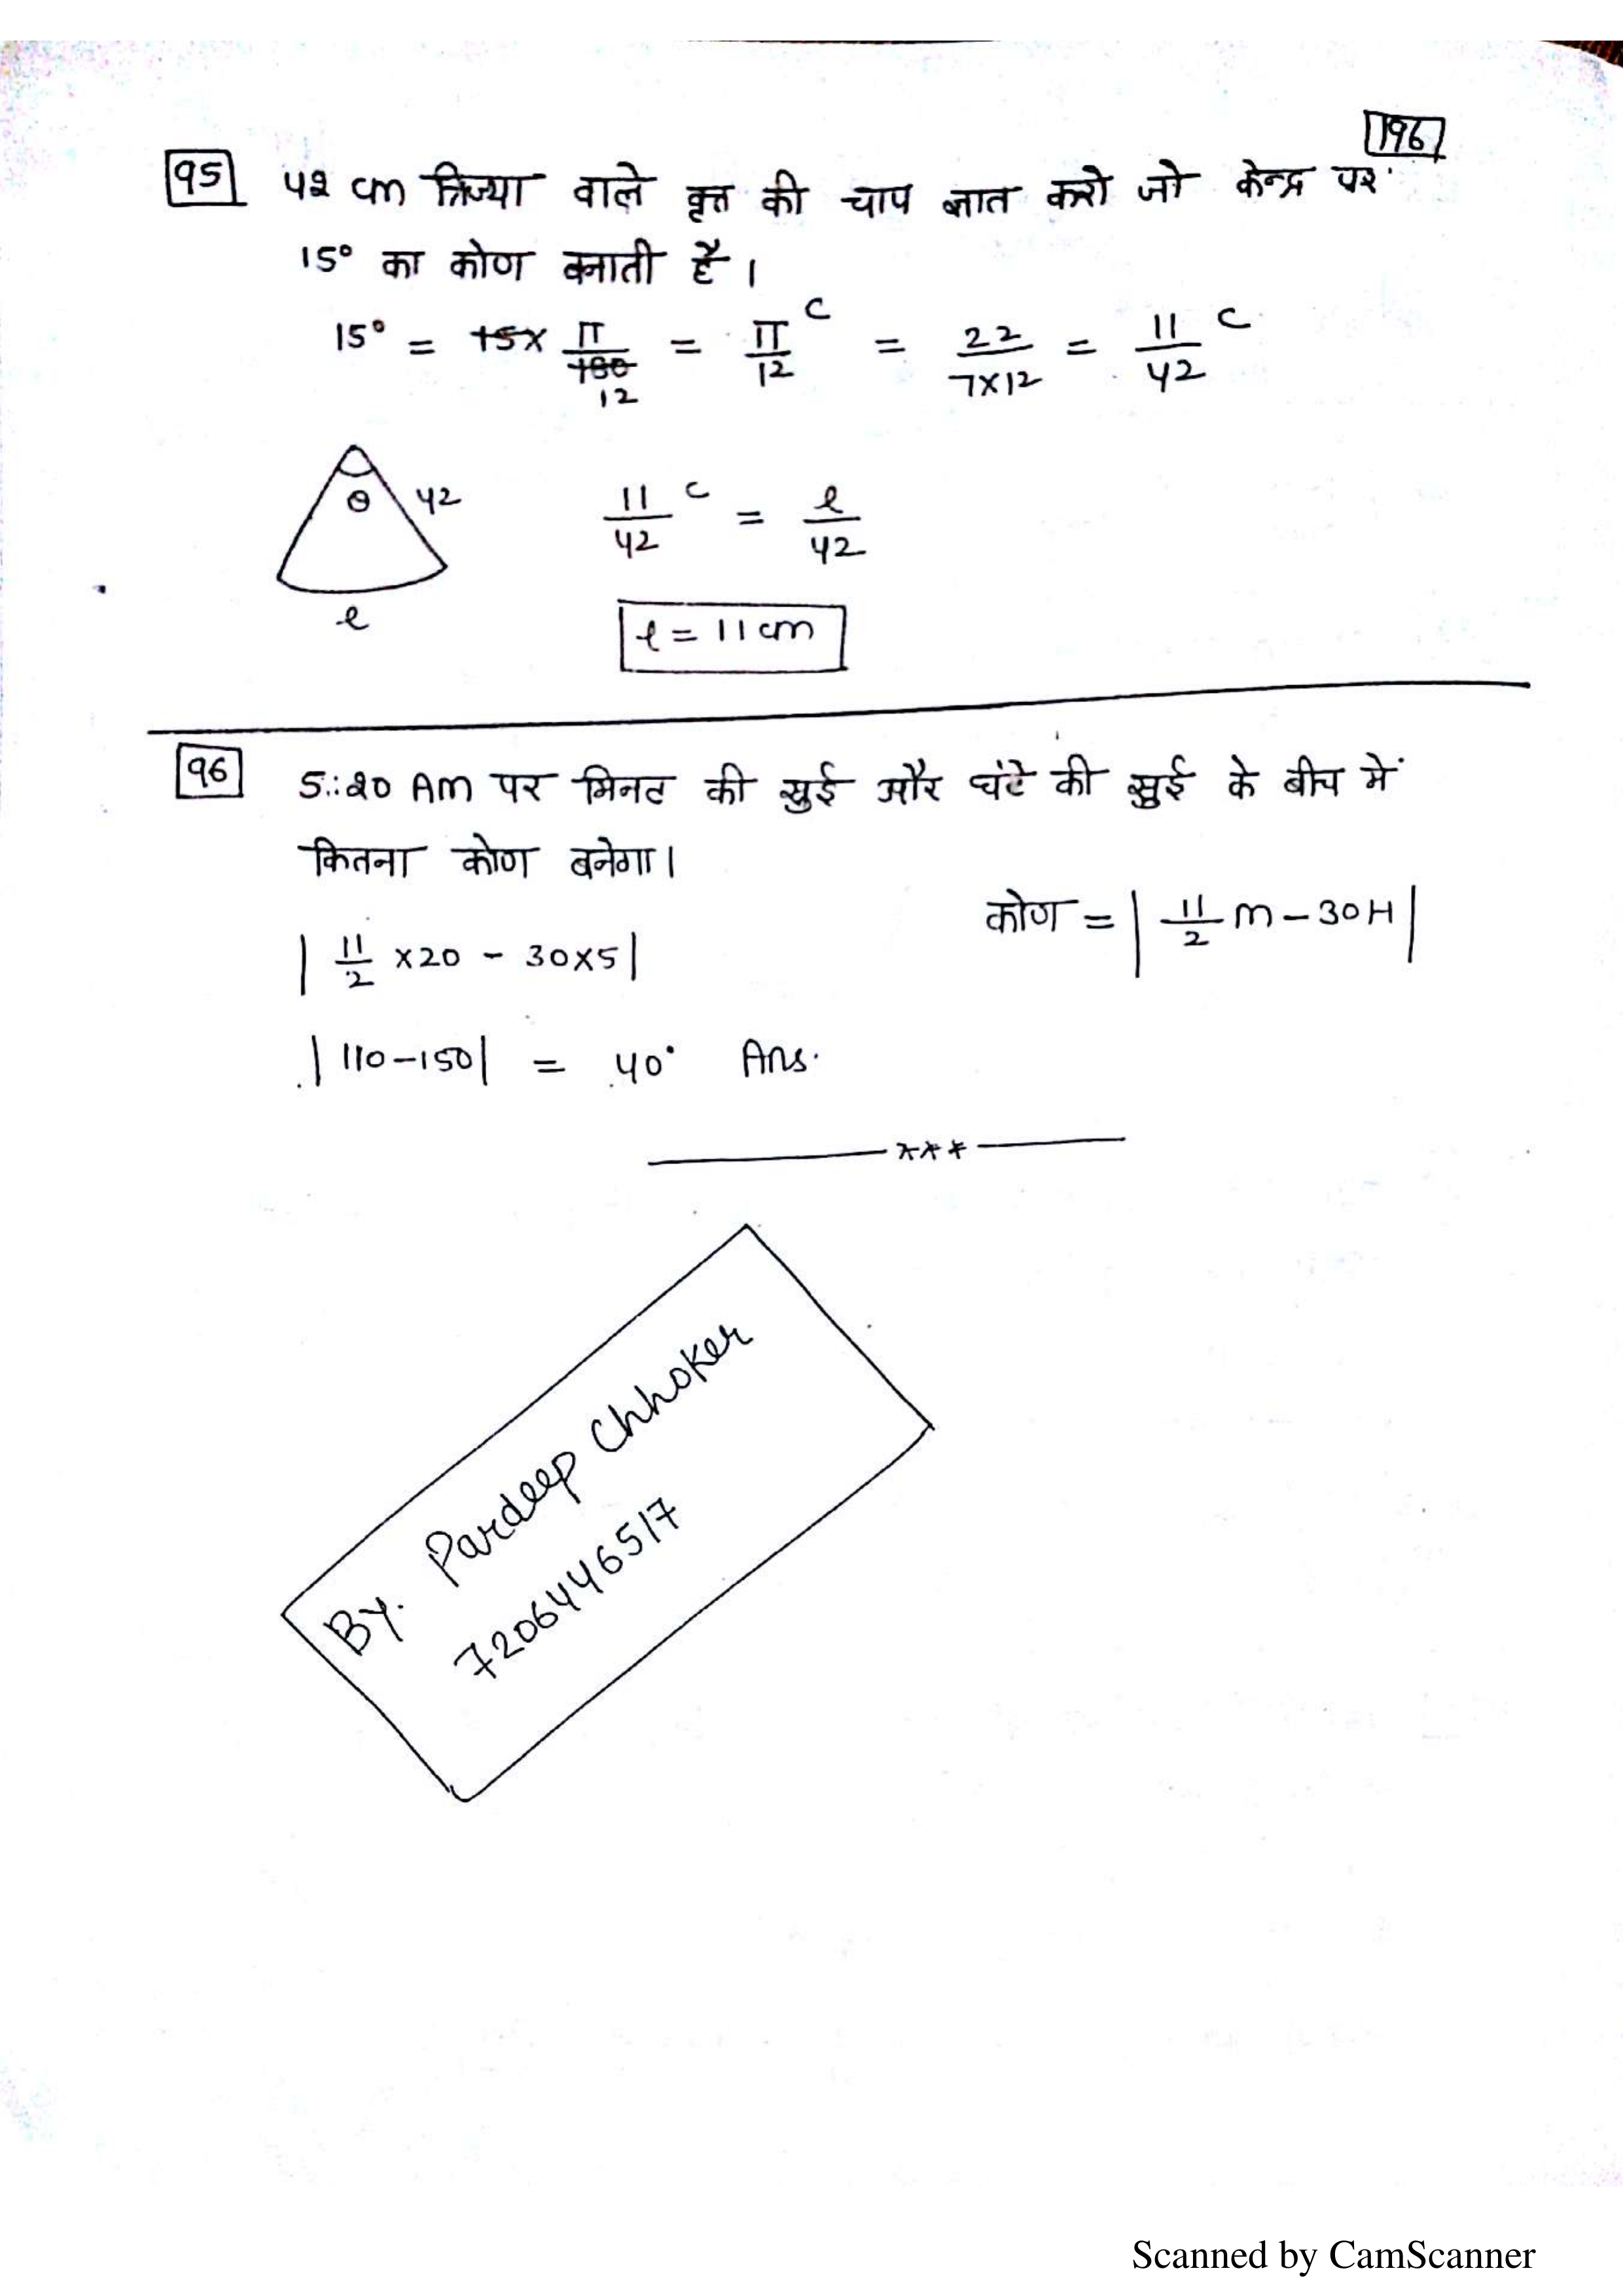 196
95 42 cm त्रिज्या वाले वृत्त की चाप ज्ञात करो जो केन्द्र पर
15° का कोण बनाती है।
15° = 15× π/180 12 = π/12 c = 22/7×12 = 11/42 c
θ 42
l
11/42 c = l/42
l = 11 cm
96 5:20 Am पर मिनट की सुई और घंटे की सुई के बीच में
कितना कोण बनेगा।
कोण = | 11/2 m - 30H |
| 11/2 ×20 - 30×5 |
| 110-150 | = 40° Ans.
***
By. Pardeep Chhoker
7206446517
Scanned by CamScanner